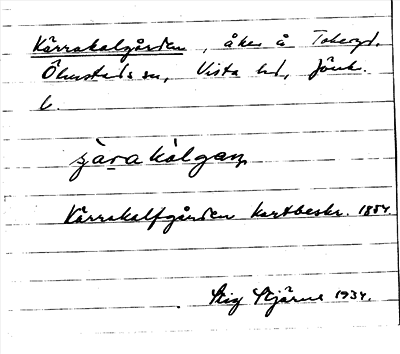 Kärrakalgården, åker å Toberyd.
Ölmstads sn, Vista hd, Jönk.
l.
Kärrakalfgården kartbeskr. 1854.
Stig Stjärne 1934.